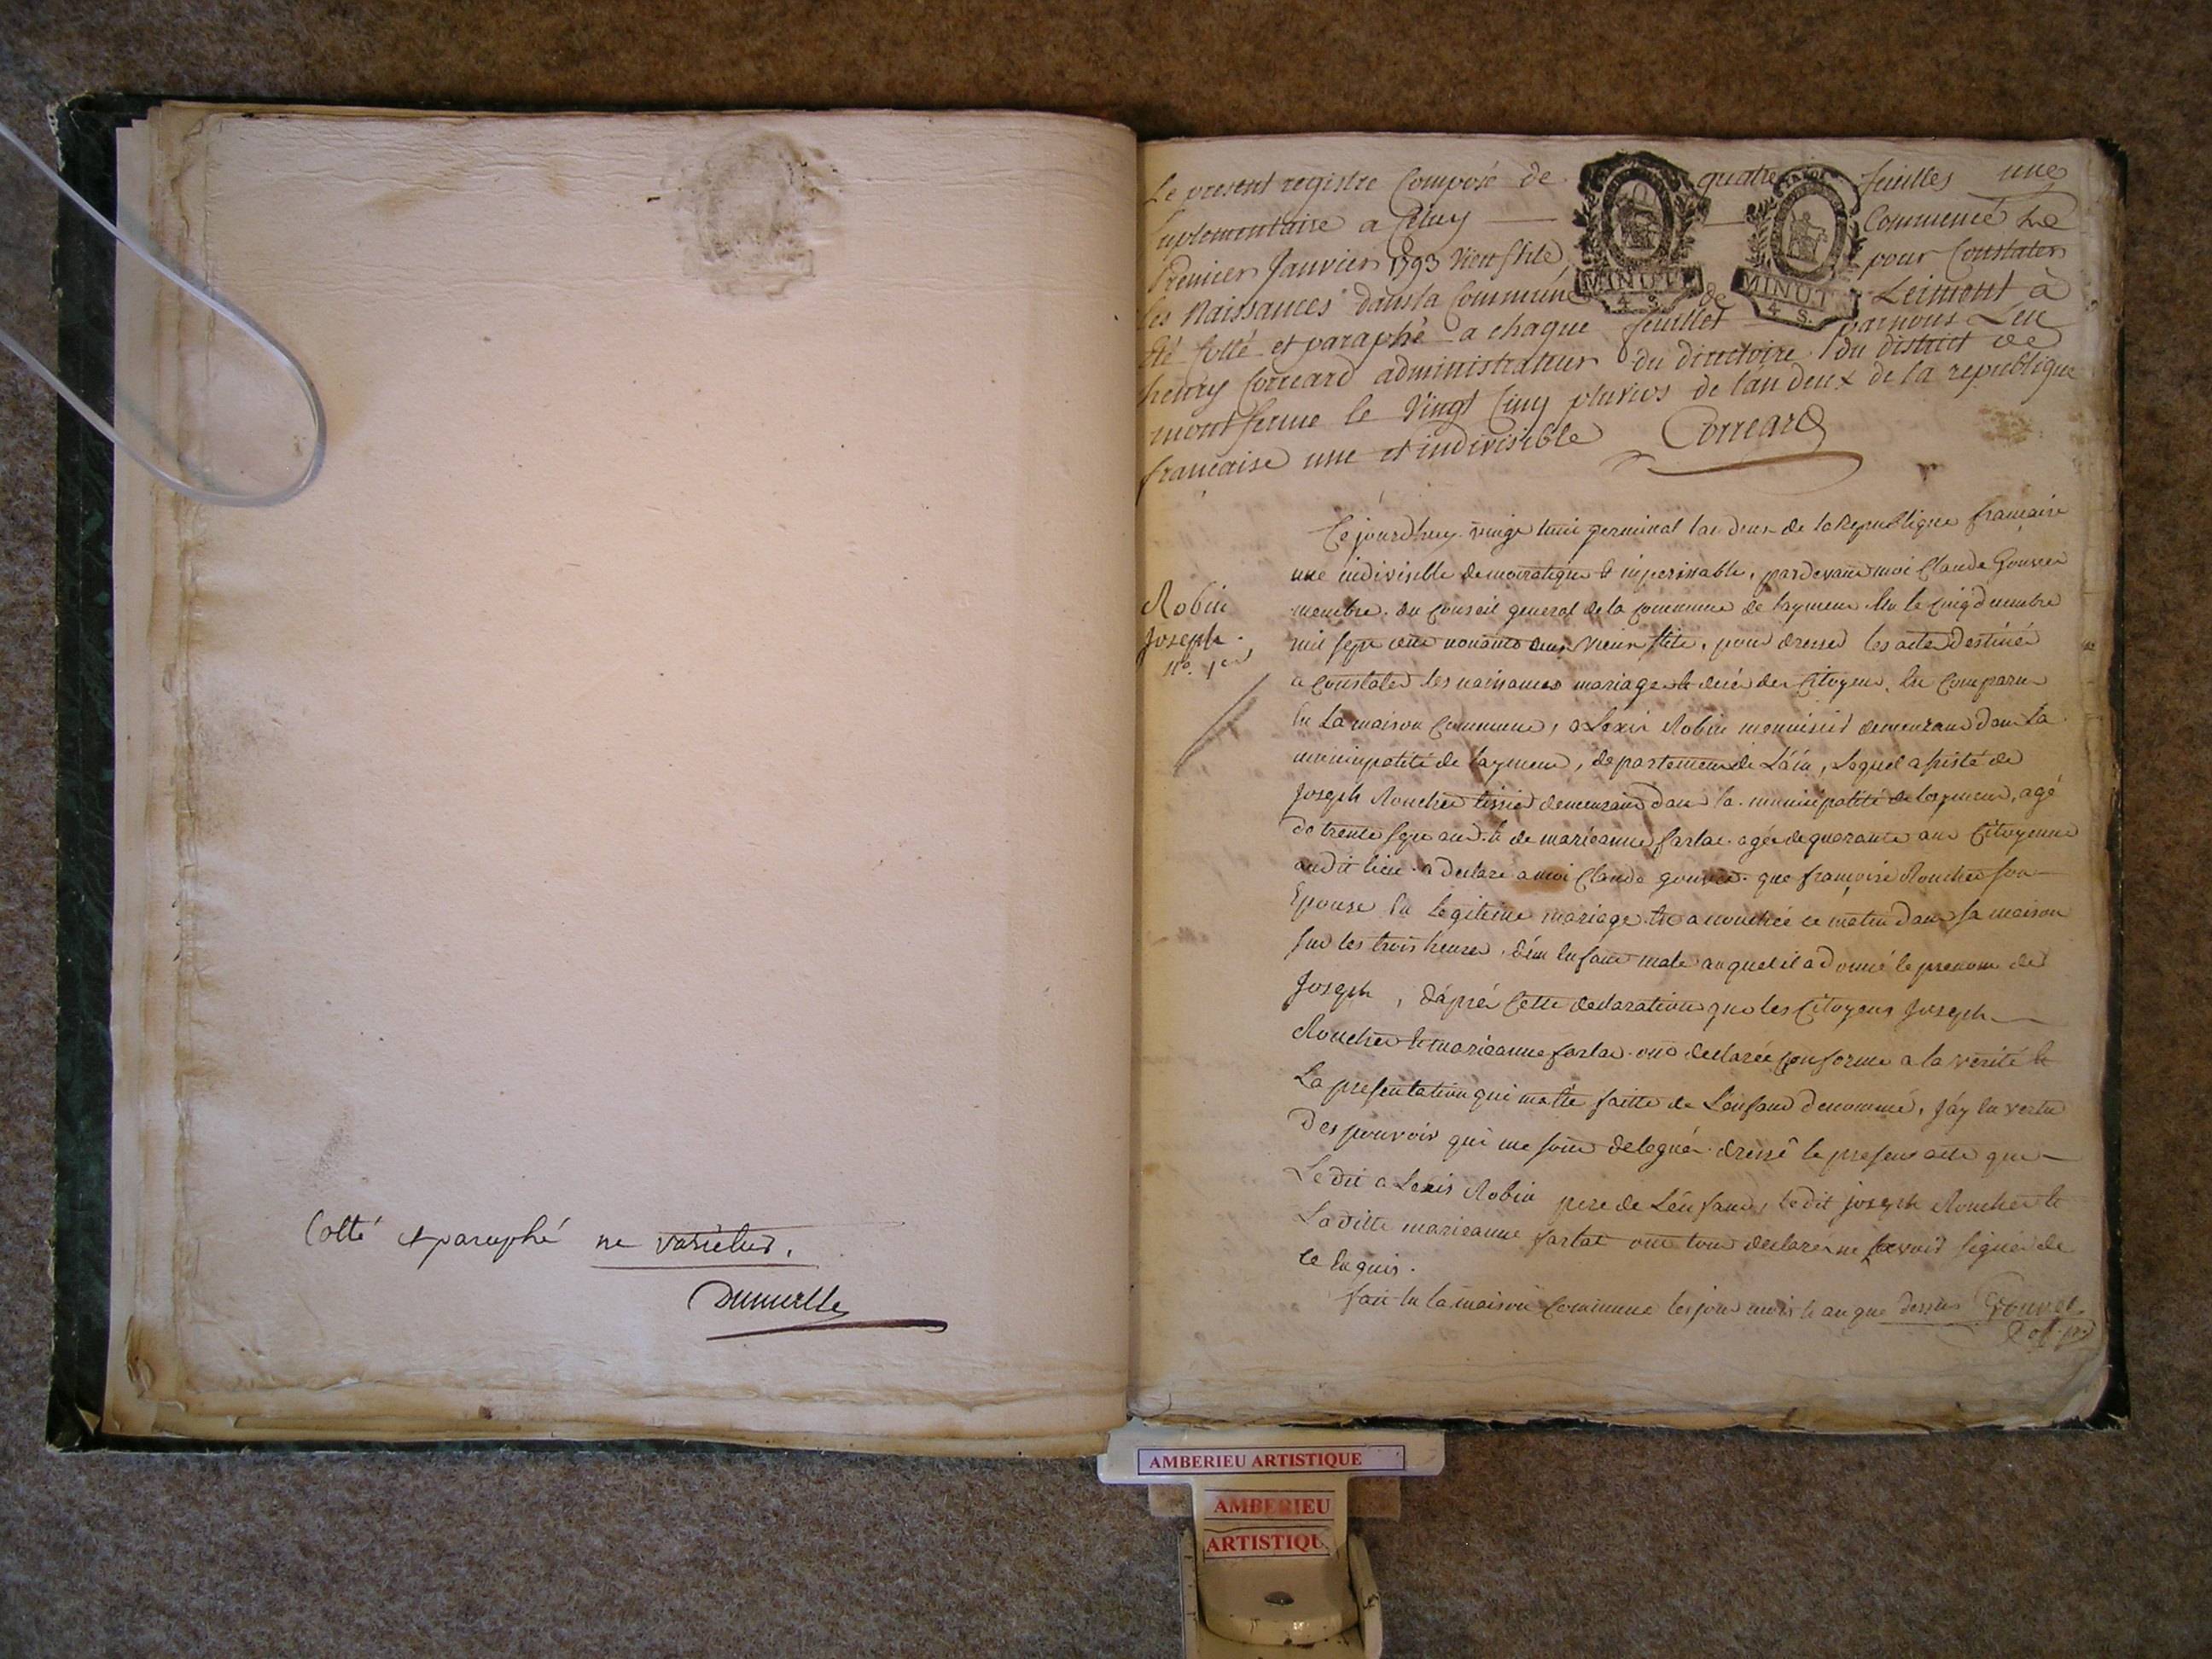 Cotté et paraphé ne varietur.
Dumuelle
Le present registre Composé de quatre feuilles une
suplementaire a Celuy Commencé Le
Premier Janvier 1793 vieu stile pour Constater
les Naissances dans la Commune de Leiment à
Eté Cotté et paraphé a chaque feuillet par nous Leu
henry Correard administrateur du directoire du district de
montferme le Vingt Cinq pluvios de lan deux de la republique
francaise une et indivisible Correard
MINUT
4 S.
MINUT
4 S.
Robin
Joseph.
no. 1er
Ce jourdhuy vingt huit germinal lan deux de la Republique francaise
une indivisible democratique et imperissable, pardevant moi Claude Gouvet
membre du Conseil general de la commune de laymens elu le cinq decembre
mil sept cent nonante deux vieux stile, pour dresser les actes destinés
a Constater les naissances mariages et decés des Citoyens, est comparu
en La maison Commune, a Lexis Robin menuisier demeurant dans la
municipalité de laymens, departement de L'ain, Lequel assisté de
Joseph Roucher tissier demeurant dans la municipalité de laymens, agé
de trente sept ans et de marieanne farlat agée de quarante ans Citoyenne
audit lieu a declaré a moi Claude gouvet que francoise Roucher son
Epouse en legitime mariage est acouchée ce matin dans sa maison
sur les trois heures, d'un enfant male auquel il a donné le prenom de
Joseph, d'aprés Cette declaration que les Citoyens Joseph
Roucher et marieanne farlat ont declarée conforme a la verité et
La presentation qui ma été faitte de L'enfant denommé, j'ay en vertu
Des pouvoirs qui me sont delegués dressé le present acte que
Le dit a Lexis Robin pere de L'enfant, le dit joseph Roucher et
La ditte marieanne farlat ont tous declaré ne scavoir signer de
ce enquis.
fait en la maison Commune les jour mois et an que dessus Gouvet
off. p.
AMBERIEU ARTISTIQUE
AMBERIEU
ARTISTIQU